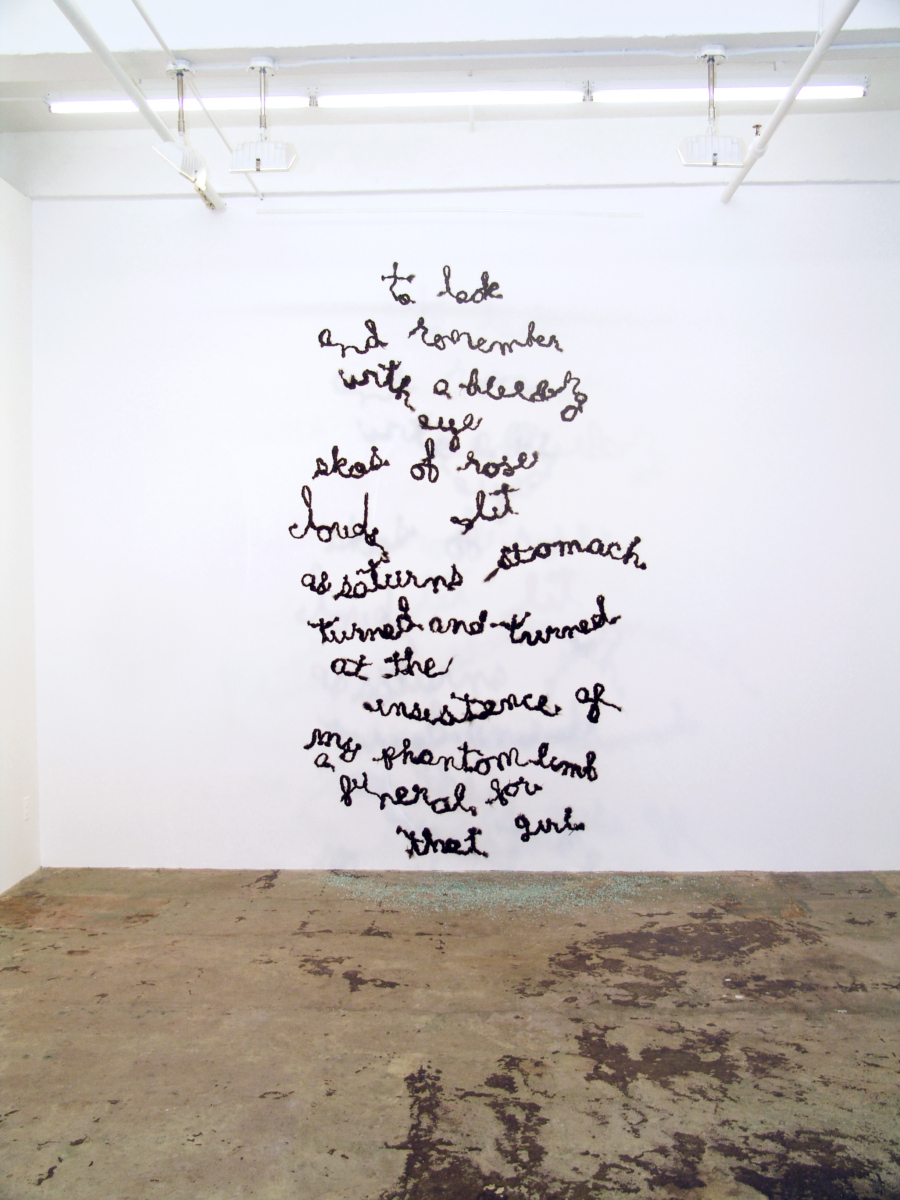 to look
and remember
with a bleeding
eye
skies of rose
loud slit
stomach
as saturns
turned and turned
at the
insistence of
my phantom limb
a
funeral for
that girl